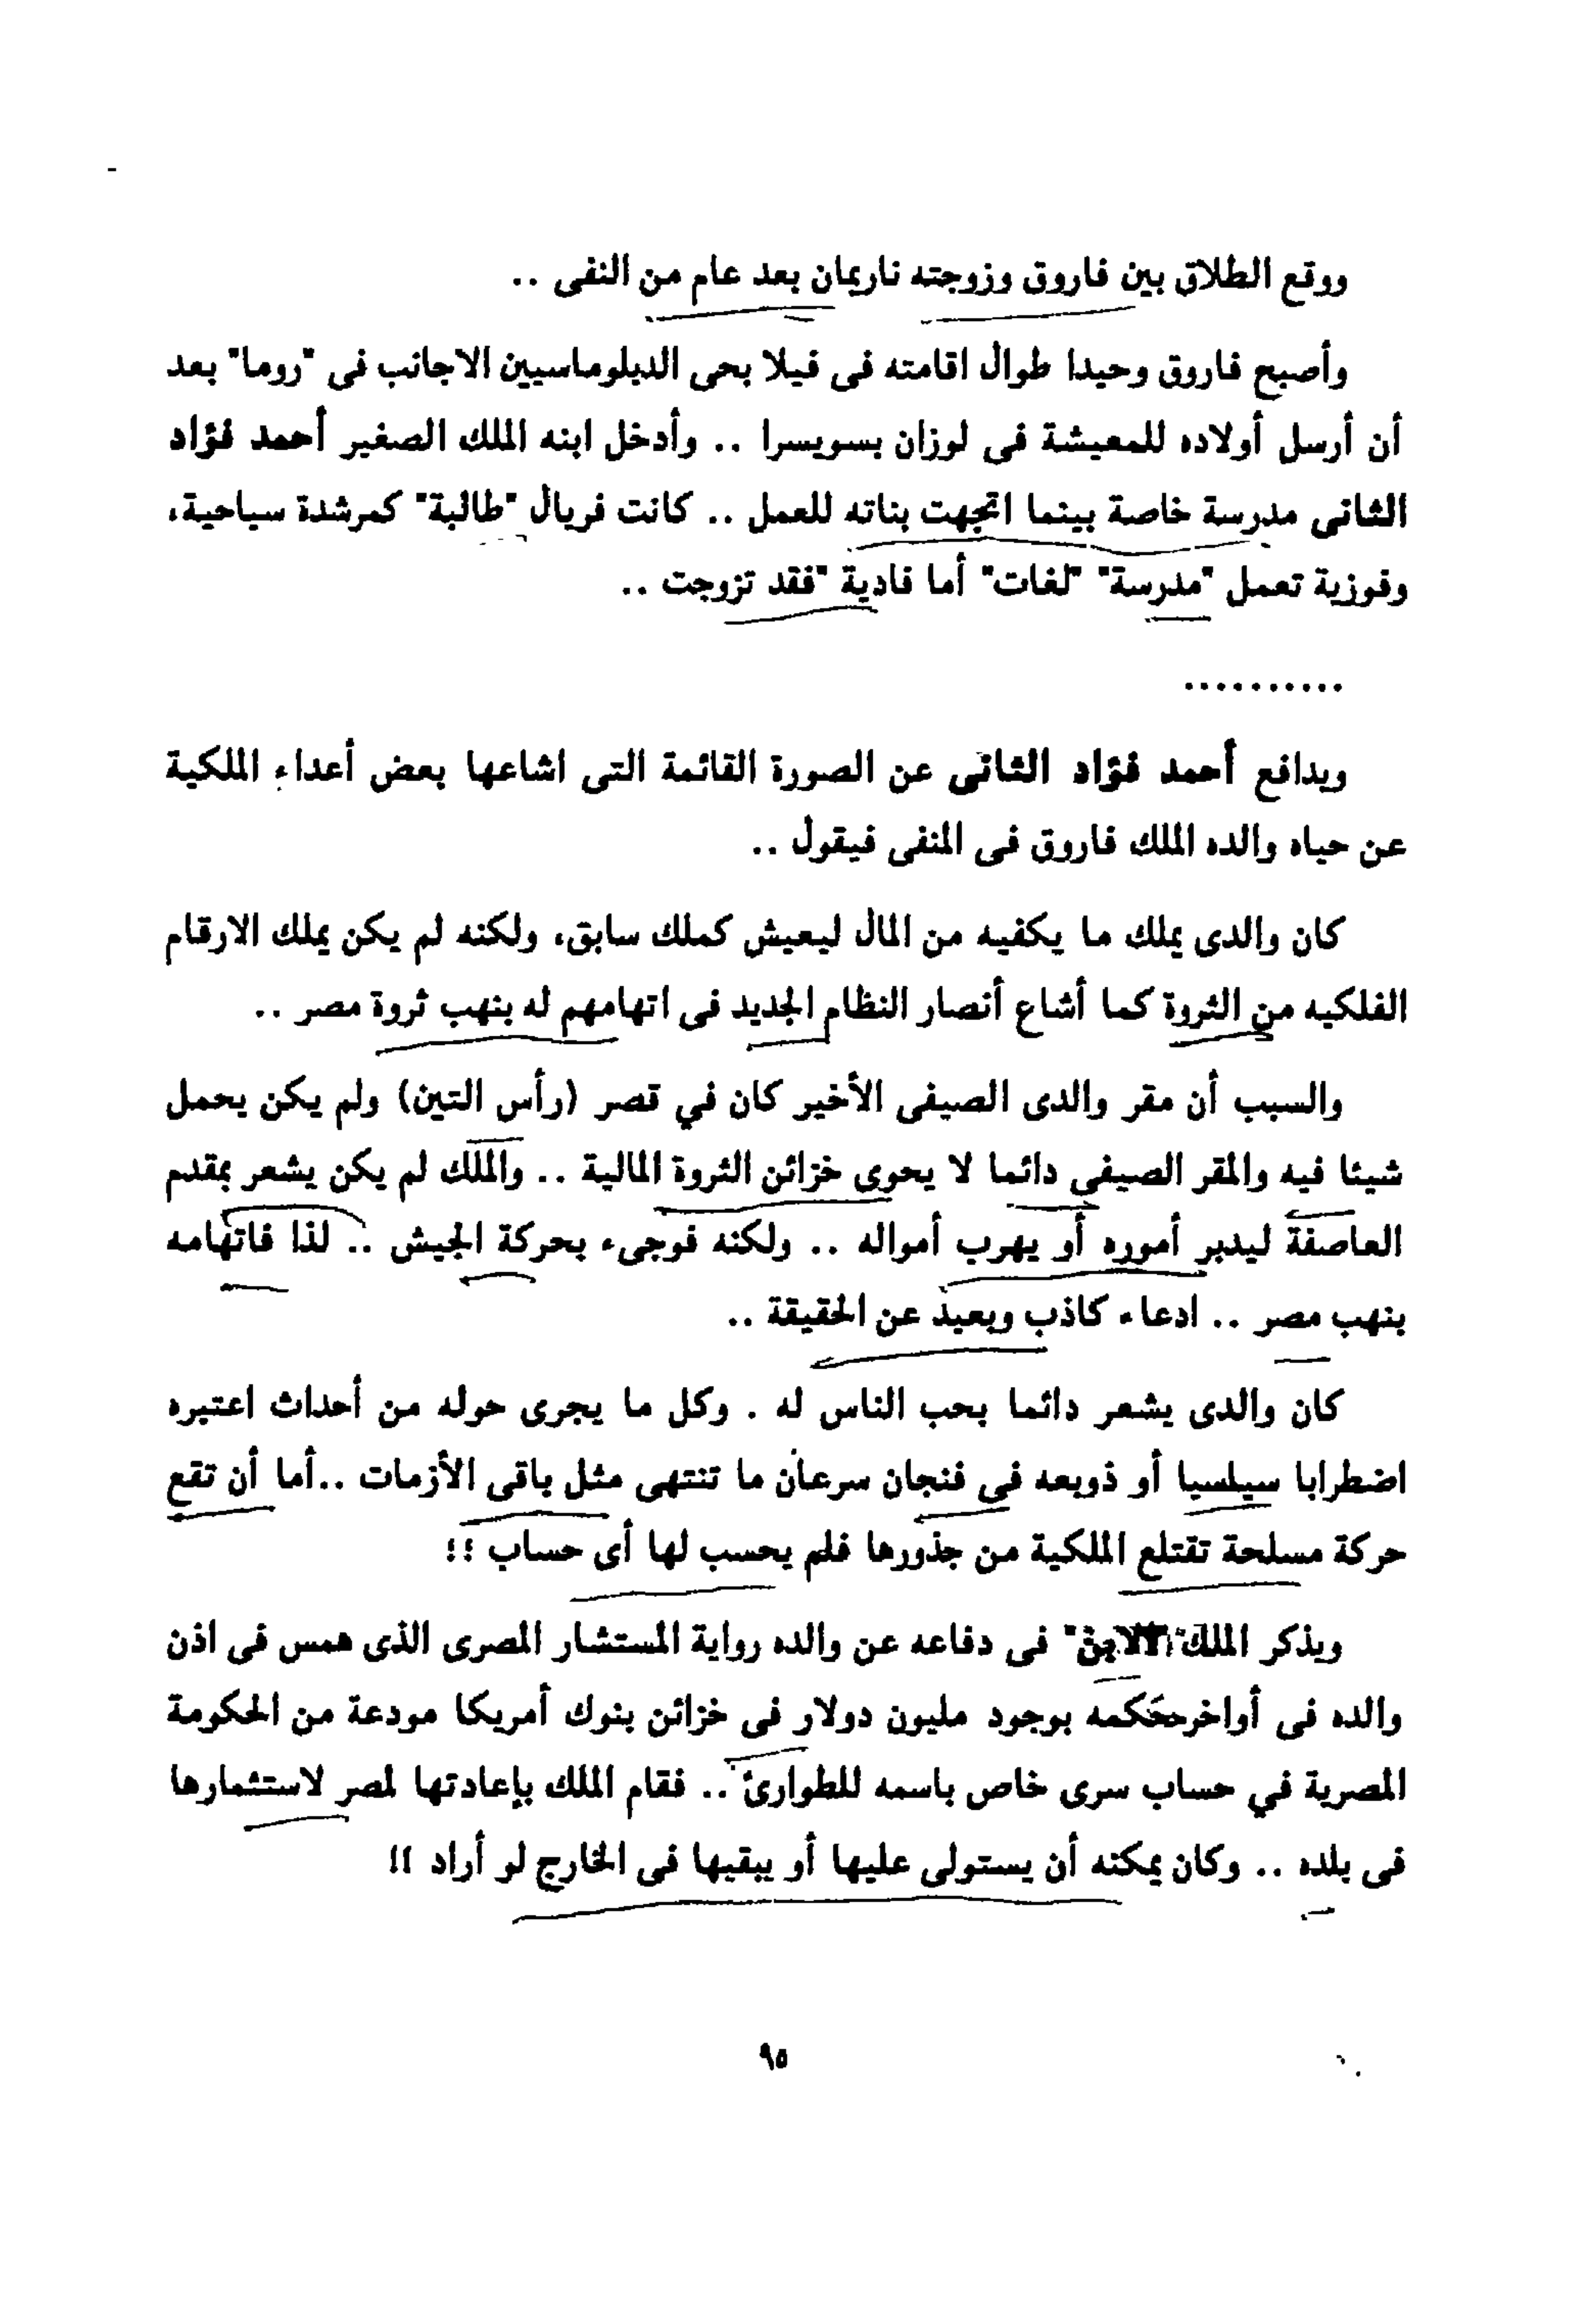 ووقع الطلاق بين فاروق وزوجته ناريمان بعد عام من النفى ..
وأصبح فاروق وحيدا طوال اقامته فى فيلا بحى الدبلوماسيين الاجانب فى "روما" بعد
أن أرسل أولاده للمعيشة فى لوزان بسويسرا .. وأدخل ابنه الملك الصغير أحمد فؤاد
الثانى مدرسة خاصة بينما اتجهت بناته للعمل .. كانت فريال "طالبة" كمرشدة سياحية،
وفوزية تعمل "مدرسة" "لغات" أما فادية "فقد تزوجت ..
..........
ويدافع أحمد فؤاد الثانى عن الصورة القائمة التى اشاعها بعض أعداء الملكية
عن حياه والده الملك فاروق فى المنفى فيقول ..
كان والدى يملك ما يكفيه من المال ليعيش كملك سابق، ولكنه لم يكن يملك الارقام
الفلكيه من الثروة كما أشاع أنصار النظام الجديد فى اتهامهم له بنهب ثروة مصر ..
والسبب أن مقر والدى الصيفى الأخير كان في قصر (رأس التين) ولم يكن يحمل
شيئا فيه والمقر الصيفى دائما لا يحوى خزائن الثروة المالية .. والملك لم يكن يشعر بمقدم
العاصفة ليدبر أموره أو يهرب أمواله .. ولكنه فوجىء بحركة الجيش .. لذا فاتهامه
بنهب مصر .. ادعاء كاذب وبعيد عن الحقيقة ..
كان والدى يشعر دائما بحب الناس له . وكل ما يجرى حوله من أحداث اعتبره
اضطرابا سيلسيا أو ذوبعه فى فنجان سرعان ما تنتهى مثل باقى الأزمات ..أما أن تقع
حركة مسلحة تقتلع الملكية من جذورها فلم يحسب لها أى حساب !!
ويذكر الملك "الابن" فى دفاعه عن والده رواية المستشار المصرى الذى همس فى اذن
والده فى أواخر حكمه بوجود مليون دولار فى خزائن بنوك أمريكا مودعة من الحكومة
المصرية في حساب سرى خاص باسمه للطوارئ .. فقام الملك بإعادتها لمصر لاستثمارها
فى بلده .. وكان يمكنه أن يستولى عليها أو يبقيها فى الخارج لو أراد !!
٩٥